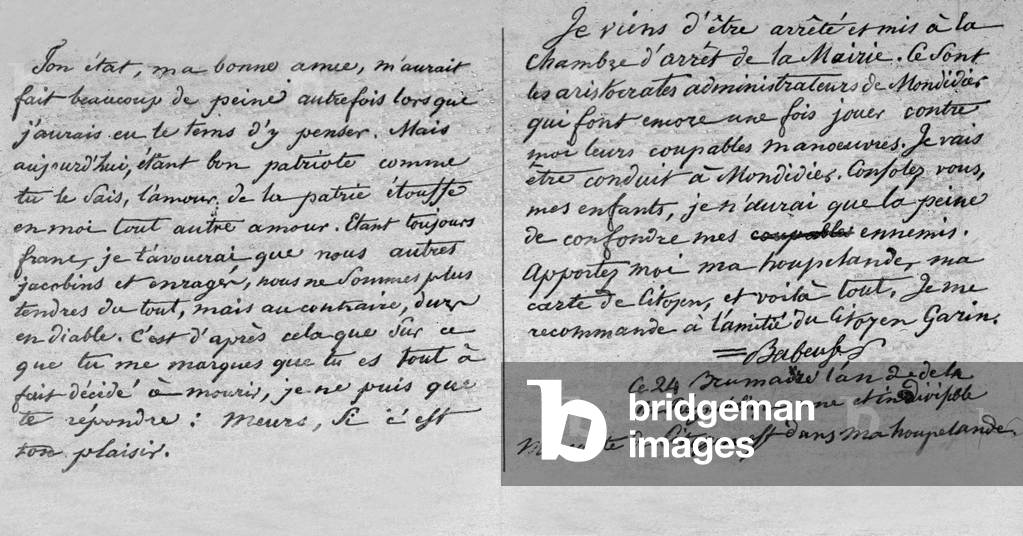 Ton état, ma bonne amie, m'aurait
fait beaucoup de peine autrefois lorsque
j'aurais eu le tems d'y penser. Mais
aujourd'hui, étant bon patriote comme
tu le sais, l'amour de la patrie étouffe
en moi tout autre amour. Etant toujours
franc, je t'avouerai que nous autres
jacobins et enragés, nous ne sommes plus
tendres du tout, mais au contraire, durs
en diable. C'est d'après cela que sur ce
que tu me marques que tu es tout à
fait décidé à mourir, je ne puis que
te répondre : meurs, si c'est
ton plaisir.
Je viens d'être arrêté et mis à la
Chambre d'arrêt de la Mairie. Ce sont
les aristocrates administrateurs de Mondidier
qui font encore une fois jouer contre
moi leurs coupables manoeuvres. Je vais
être conduit à Mondidier. Consolez vous,
mes enfants, je n'aurai que la peine
de confondre mes coupables ennemis.
Apportez moi ma houpelande, ma
carte de Citoyen, et voilà tout. Je me
recommande à l'amitié du Citoyen Garin.
Babeuf
Ce 24 Brumaire l'an 2 de la
une et indivisible
dans ma houpelande
bridgeman
images
b